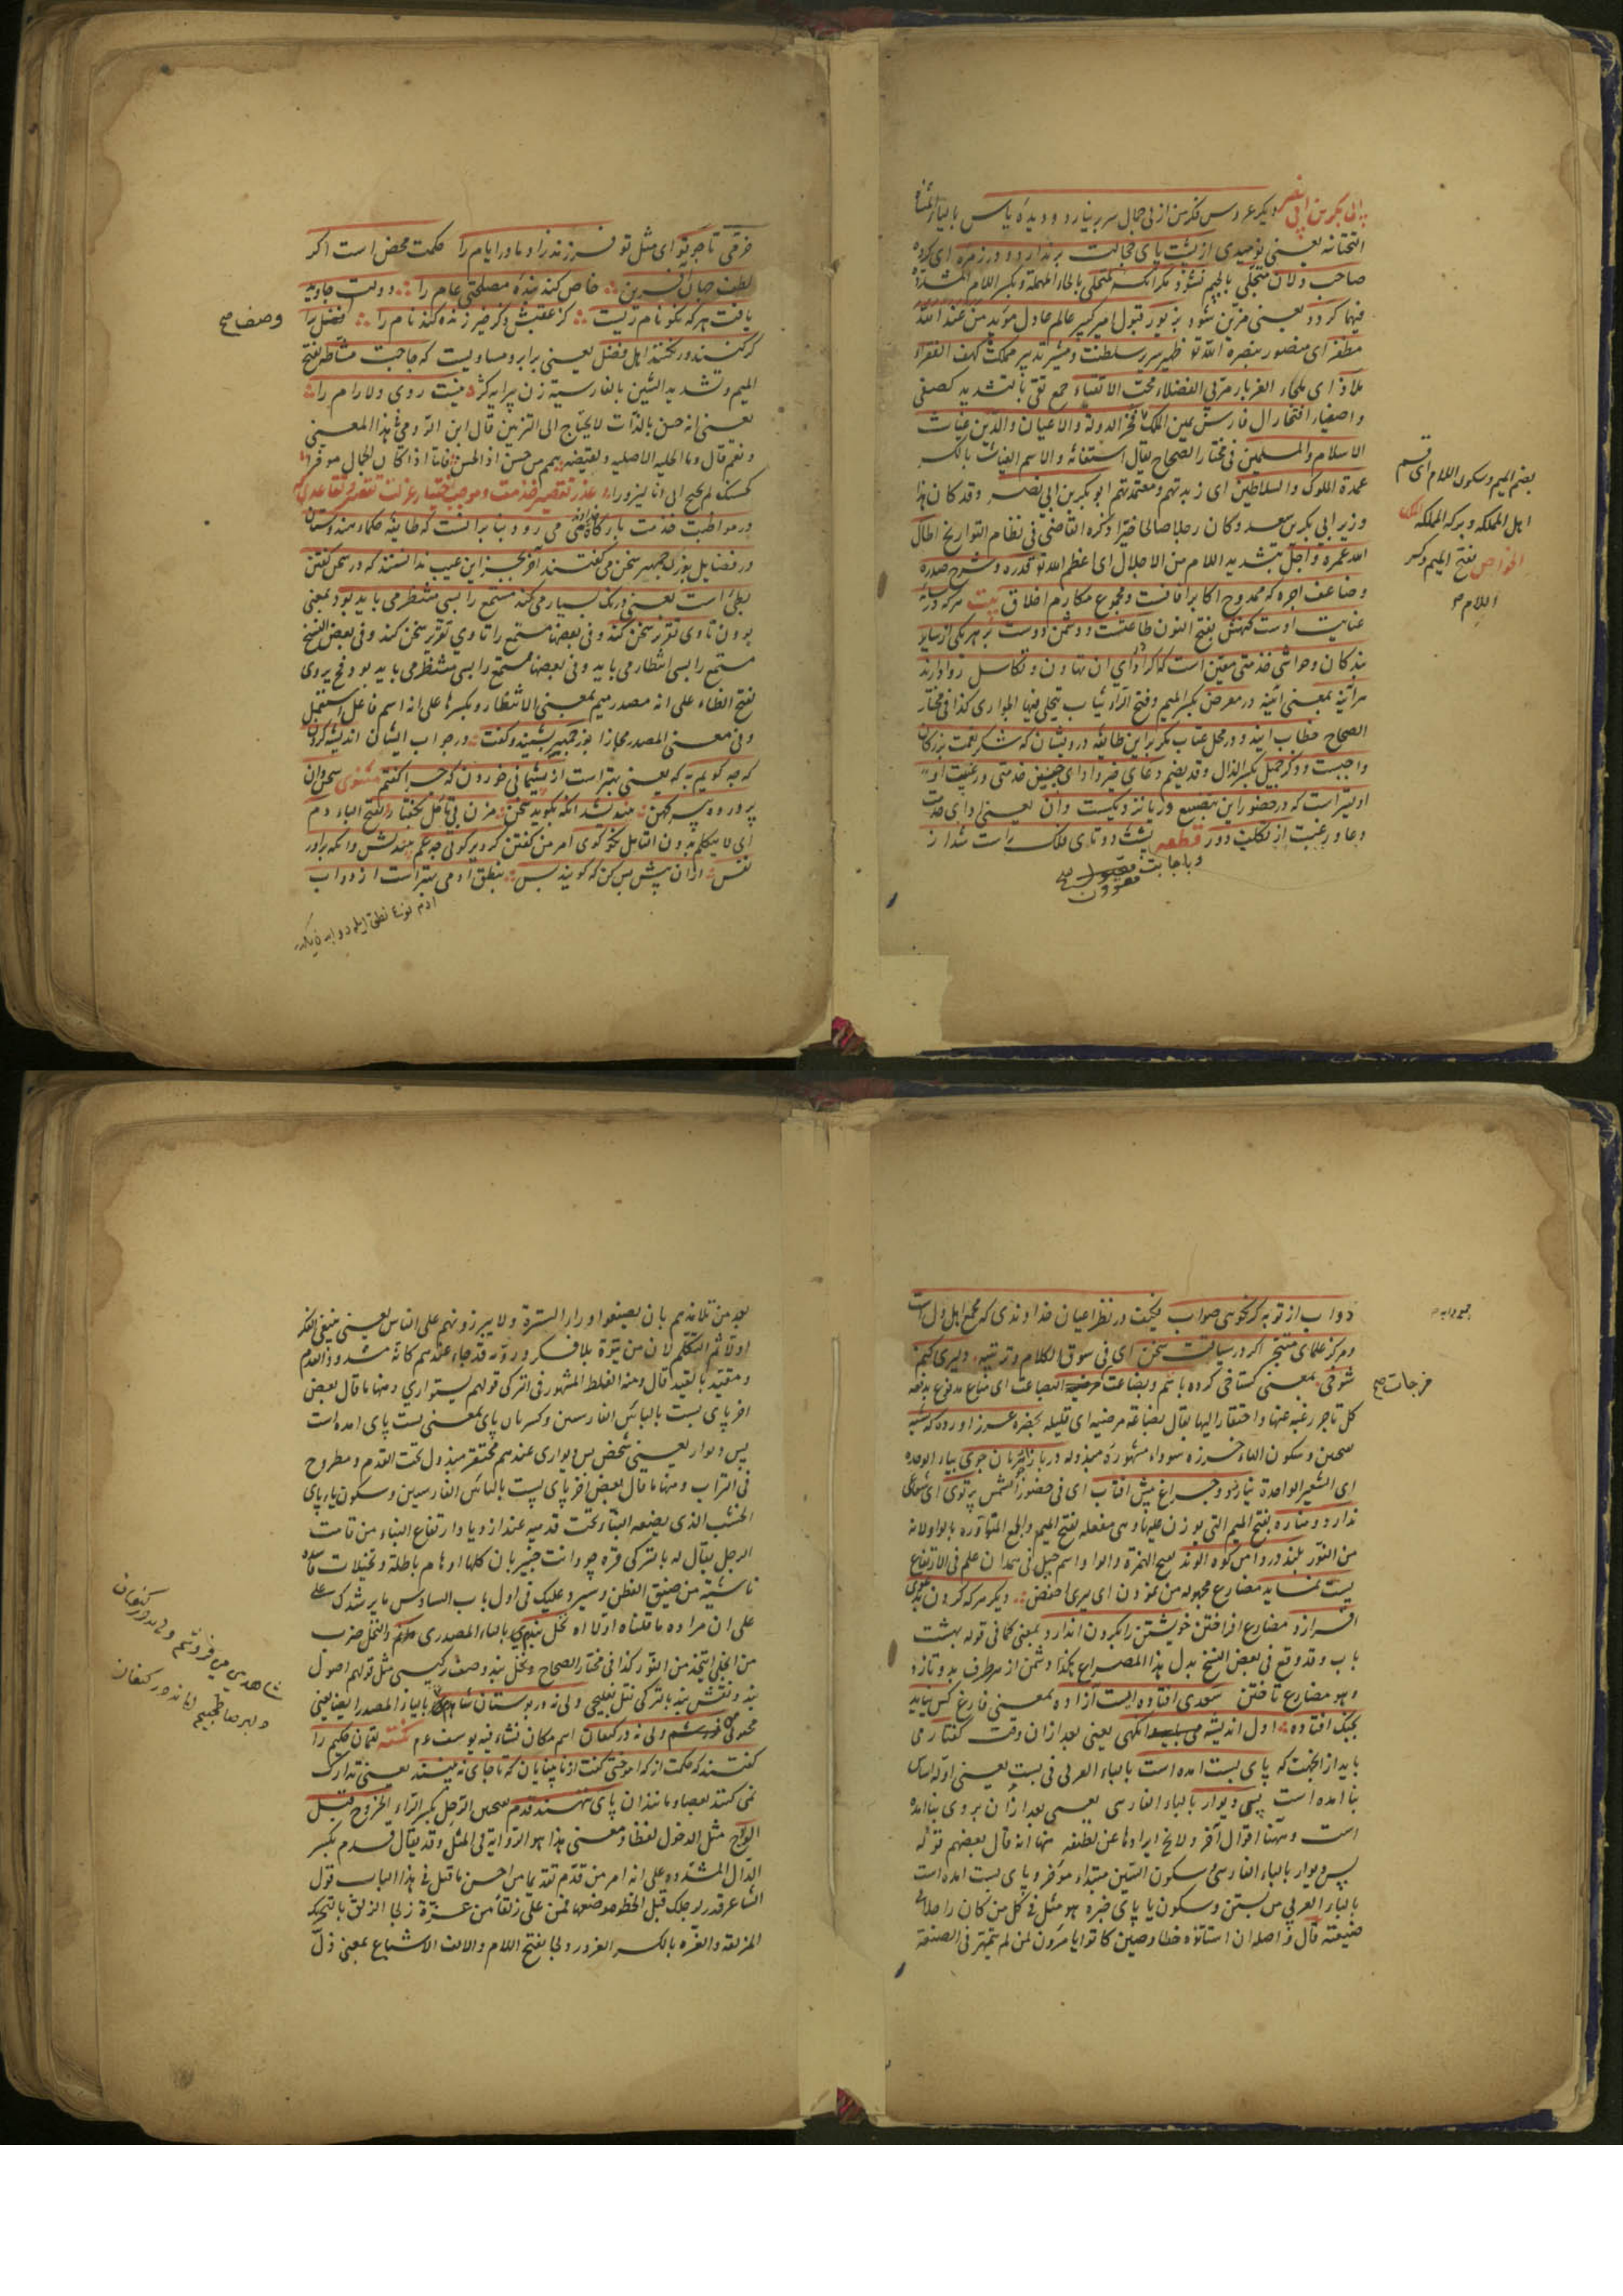 بابی بکر بن ابی نصر دیگر عروس فکر من از بی جمالی سر بر نیارد و دیده یاس بالیاء المثناة
التحتانیة یعنی نومیدی از پشت پای خجالت بر ندارد و در زمره ای کروه
صاحب دلان متجلی بالجیم نشود مکر آنکه متحلی بالحاء المهملة و بکسر اللام المشددة
فیهما کردد یعنی مزین شود بزیور قبول امیر کبیر عالم عادل مؤید من عند الله
مظفر ای منصور بنصرة الله تع ظهیر سریر سلطنت و مشیر تدبیر مملکت کهف الفقراء
ملاذ ای ملجاء الغرباء مربی الفضلاء محب الاتقیاء جمع تقی بالتشدید کصفی
و اصفیاء افتخار ال فارس یمین الملک فخر الدولة والاعیان والدین غیاث
الاسلام والمسلمین فی مختار الصحاح یقال استغاثه والاسم الغیاث بالکسر
عمدة الملوک والسلاطین ای زبدتهم ومعتمدتهم ابو بکر بن ابی نصر وقد کان هذا
وزیر ابی بکر بن سعد وکان رجلا صالحا خیرا ذکره القاضی فی نظام التواریخ اطال
الله عمره واجل بتشدید اللام من الاجلال ای اعظم الله تع قدره وشرح صدره
وضاعف اجره که ممدوح اکابر افاقست ومجموع مکارم اخلاق بیت هرکه در سایه
عنایت اوست کنهش بفتح النون طاعتست ودشمن دوست بر هر یکی از سایر
بندکان وحواشی خدمتی معین است که اکر در ادای ان تهاون وتکاسل روا دارند
هرآینه بمعنی البته در معرض بکسر المیم وفتح الراء ثیاب تجلی فیها الجواری کذا فی مختار
الصحاح خطاب ایند ودر محل عتاب مکر بر این طایفه درویشان که شکر نعمت بزرکان
واجبست وذکر جمیل بکسر الذال وقد یضم دعای خیر وادای چنین خدمتی در غیبت او
اولیتر است که در حضور این بتصنع نزدیکست وان یعنی ادای خدمت
دعا در غیبت از تکلف دور قطعه پشت دوتای فلک راست شد از
وباجابت مقرون صح
بضم المیم وسکون اللام ای قسم
اهل المملکه وبرکه المملکه
الخواص بفتح المیم وکسر
اللام ص
خرمی تا چو تو ای مثل تو فرزند زاد مادر ایام را حکمت محض است اکر
لطف جهان افرین خاص کند بنده مصلحتی عام را دولت جاوید
یافت هرکه نکو نام زیست کز عقبش ذکر خیر زنده کند نام را فضل ترا
کر کنند ور نکنند اهل فضل یعنی برابر ومساویست که حاجت مشاطه بفتح
المیم وتشدید الشین بالفارسیة زن پیرایه کر نیست روی دلارام را
یعنی انه حسن بالذات لایحتاج الی التزیین قال ابن الرومی فی هذا المعنی
ونعم قال وما الحلیة الاصلیه ونقیضه یتمم من حسن اذا الحسن فاما اذا کان الجمال موفرا
کحسنک لم یحتج الی ان یزورا عذر تقصیر خدمت وموجب اختیار عزلت تقصیر وتقاعدی که
در مواظبت خدمت بارکاه خداوندی می رود بنابر انست که طایفه حکماء هندوستان
در فضایل بزرجمهر سخن می گفتند آخر بجز این عیب ندانستند که در سخن کفتن
بطئ است یعنی درنک بسیار می کند مستمع را بسی منتظر می باید بود بمعنی
بودن تا وی تقریر سخن کند وفی بعضها مستمع را تا وی تقریر سخن کند وفی بعض النسخ
مستمع را بسی انتظار می باید وفی بعضها مستمع را بسی منتظر می باید بود وح یروی
بفتح الظاء علی انه مصدر میم بمعنی الانتظار وبکسرها علی انه اسم فاعل استعمل
وفی معنی المصدر مجازا بزرجمهر بشنید وکفت در جواب ایشان اندیشه کردن
که چه کویم به که یعنی بهتر است از پشیمانی خوردن که چرا گفتم مثنوی سخن دان
پرورده پیر کهن بیندیشد انکه بکوید سخن مزن بی تامل بکفتار بفتح الباء دم
ای لا یتکلم بدون التامل نکو کوی امر من کفتن کر دیر کوئی چه غم بیندیش وانکه براور
نفس وزان پیش بس کن که کویند بس بنطق ادمی بهتر است از دواب
وصف صح
دواب از تو به کر نکویی صواب فکیف در نظر اعیان خداوندی که مجمع اهل دل است
ومرکز علمای متبحر اکر در سیاقت سخن ای فی سوق الکلام وترتیبه دلیری کنم
شوخی بمعنی کستاخی کرده باشم وبضاعت مزجات البضاعت ای متاع مدفوع یدفعه
کل تاجر رغبة عنها واحتقارا لیها یقال بضاعة مزجیة ای قلیله بحضرة عزیز اورده که شبه
بفتحین وسکون الهاء خرزه سوداء مشهورة مبذوله در بازار جوهریان جوی بیاء الوحده
ای الشعیر الواحدة نیارزد وچراغ پیش افتاب ای فی حضور الشمس پرتوی ای شعاعی
ندارد ومناره بفتح المیم التی یوذن علیها وهی مفعله بفتح المیم والجمع المناوره بالواو لانه
من النور بلند در دامن کوه الوند بفتح الهمزة والواو اسم جبل فی همدان علم فی الارتفاع
پست نماید مضارع مجهوله من نمودن ای یری اخفض دیکر هرکه کردن بدعوی
افرازد مضارع افراختن خویشتن را بکردن اندازد بمعنی کما فی قوله بهشت
باب وقد وقع فی بعض النسخ بدل هذا المصراع هکذا دشمن از هر طرف بدو تازد
وهو مضارع تاختن سعدی افتاده ایست آزاده بمعنی فارغ کس نیاید
بجنک افتاده اول اندیشه وانکهی یعنی بعد ازان وقت کفتار می
باید از انجهت که پای بست امده است بالباء العربی فی بست یعنی اوله اساس
بنا امده است پس دیوار بالباء الفارسی یعنی بعد ازان بر وی بنا امده
است وههنا اقوال آخر ولا یخ ایرادها عن لطیفه منها انه قال بعضهم قوله
پس دیوار بالباء الفارسی وسکون السین مبتداء موخر وپای بست امده است
بالباء العربی من بستن وسکون یا پای خبره هو مثل فی کل من کان راجلا فی
صنیعته قال واصله ان استاتذه خطا وصین کانوا یامرون لمن لم یتمهر فی الصنعة
مزجات صح
بعد من تلامذهم بان یصنعوا وراء السترة ولا یبرزونهم علی الناس یعنی ینبغی الفکر
اولا ثم التکلم لان من یتفوه بلا فکر ورویة قد جاء عندهم کانه مشدود القدم
ومقید بالقید قال ومنه الغلط المشهور فی الترکی قولهم بستواری ومنها ما قال بعض
اخر پای بست بالبائین الفارسیین وکسر یای پای بمعنی پست پای امده است
پس دیوار یعنی شخص پس دیواری عندهم محتقر مبذول تحت القدم ومطروح
فی التراب ومنها ما قال بعض اخر پای پست بالبائین الفارسیین وسکون یاء پای
الخشب الذی یضعه البناء تحت قدمیه عند ازدیاد ارتفاع البناء من قامت
الرجل یقال له بالترکی قره چو وانت خبیر بان کلها اوهام باطلة وتخیلات فاسده
ناشئة من ضیق الفطن وسیرد علیک فی اول باب السادس ما یرشدک
علی ان مراده ما قلناه اولا اه نخل بندی بالیاء المصدری دانم والنخل ضرب
من الحلی یتخذ من النور کذا فی مختار الصحاح ونخل بند وصف ترکیبی مثل قولهم اصول
بند ونقش بند بالترکی نخل بغلیجی ولی نه در بوستان شاهدی بالیاء المصدر ایضا یعنی
محبوبی فروشم ولی نه در کنعان اسم مکان نشاء فیه یوسف عم نکته لقمان حکیم را
کفتند که حکمت از که اموختی کفت از نابینایان که تا جای نه بینند یعنی تدارک
نمی کنند بعصا ومانندان پای ننهند قدم بفتحین الرجل بکسر الراء الخروج قبل
الولوج مثل الدخول لفظا ومعنی هذا هو الروایة فی المثل وقد یقال قدم بکسر
الدال المشدده علی انه امر من قدم تقدیما من احسن ما قیل فی هذا الباب قول
الشاعر قدر لرجلک قبل الخطو موضعها فمن علی زلقا من غرة زلجا الزلق بالتحریک
المزلقة والغره بالکسر الغرور ولجا بفتح اللام والالف الاشباع بمعنی زل
شاهدی می فروشم ولی نه در کنعان